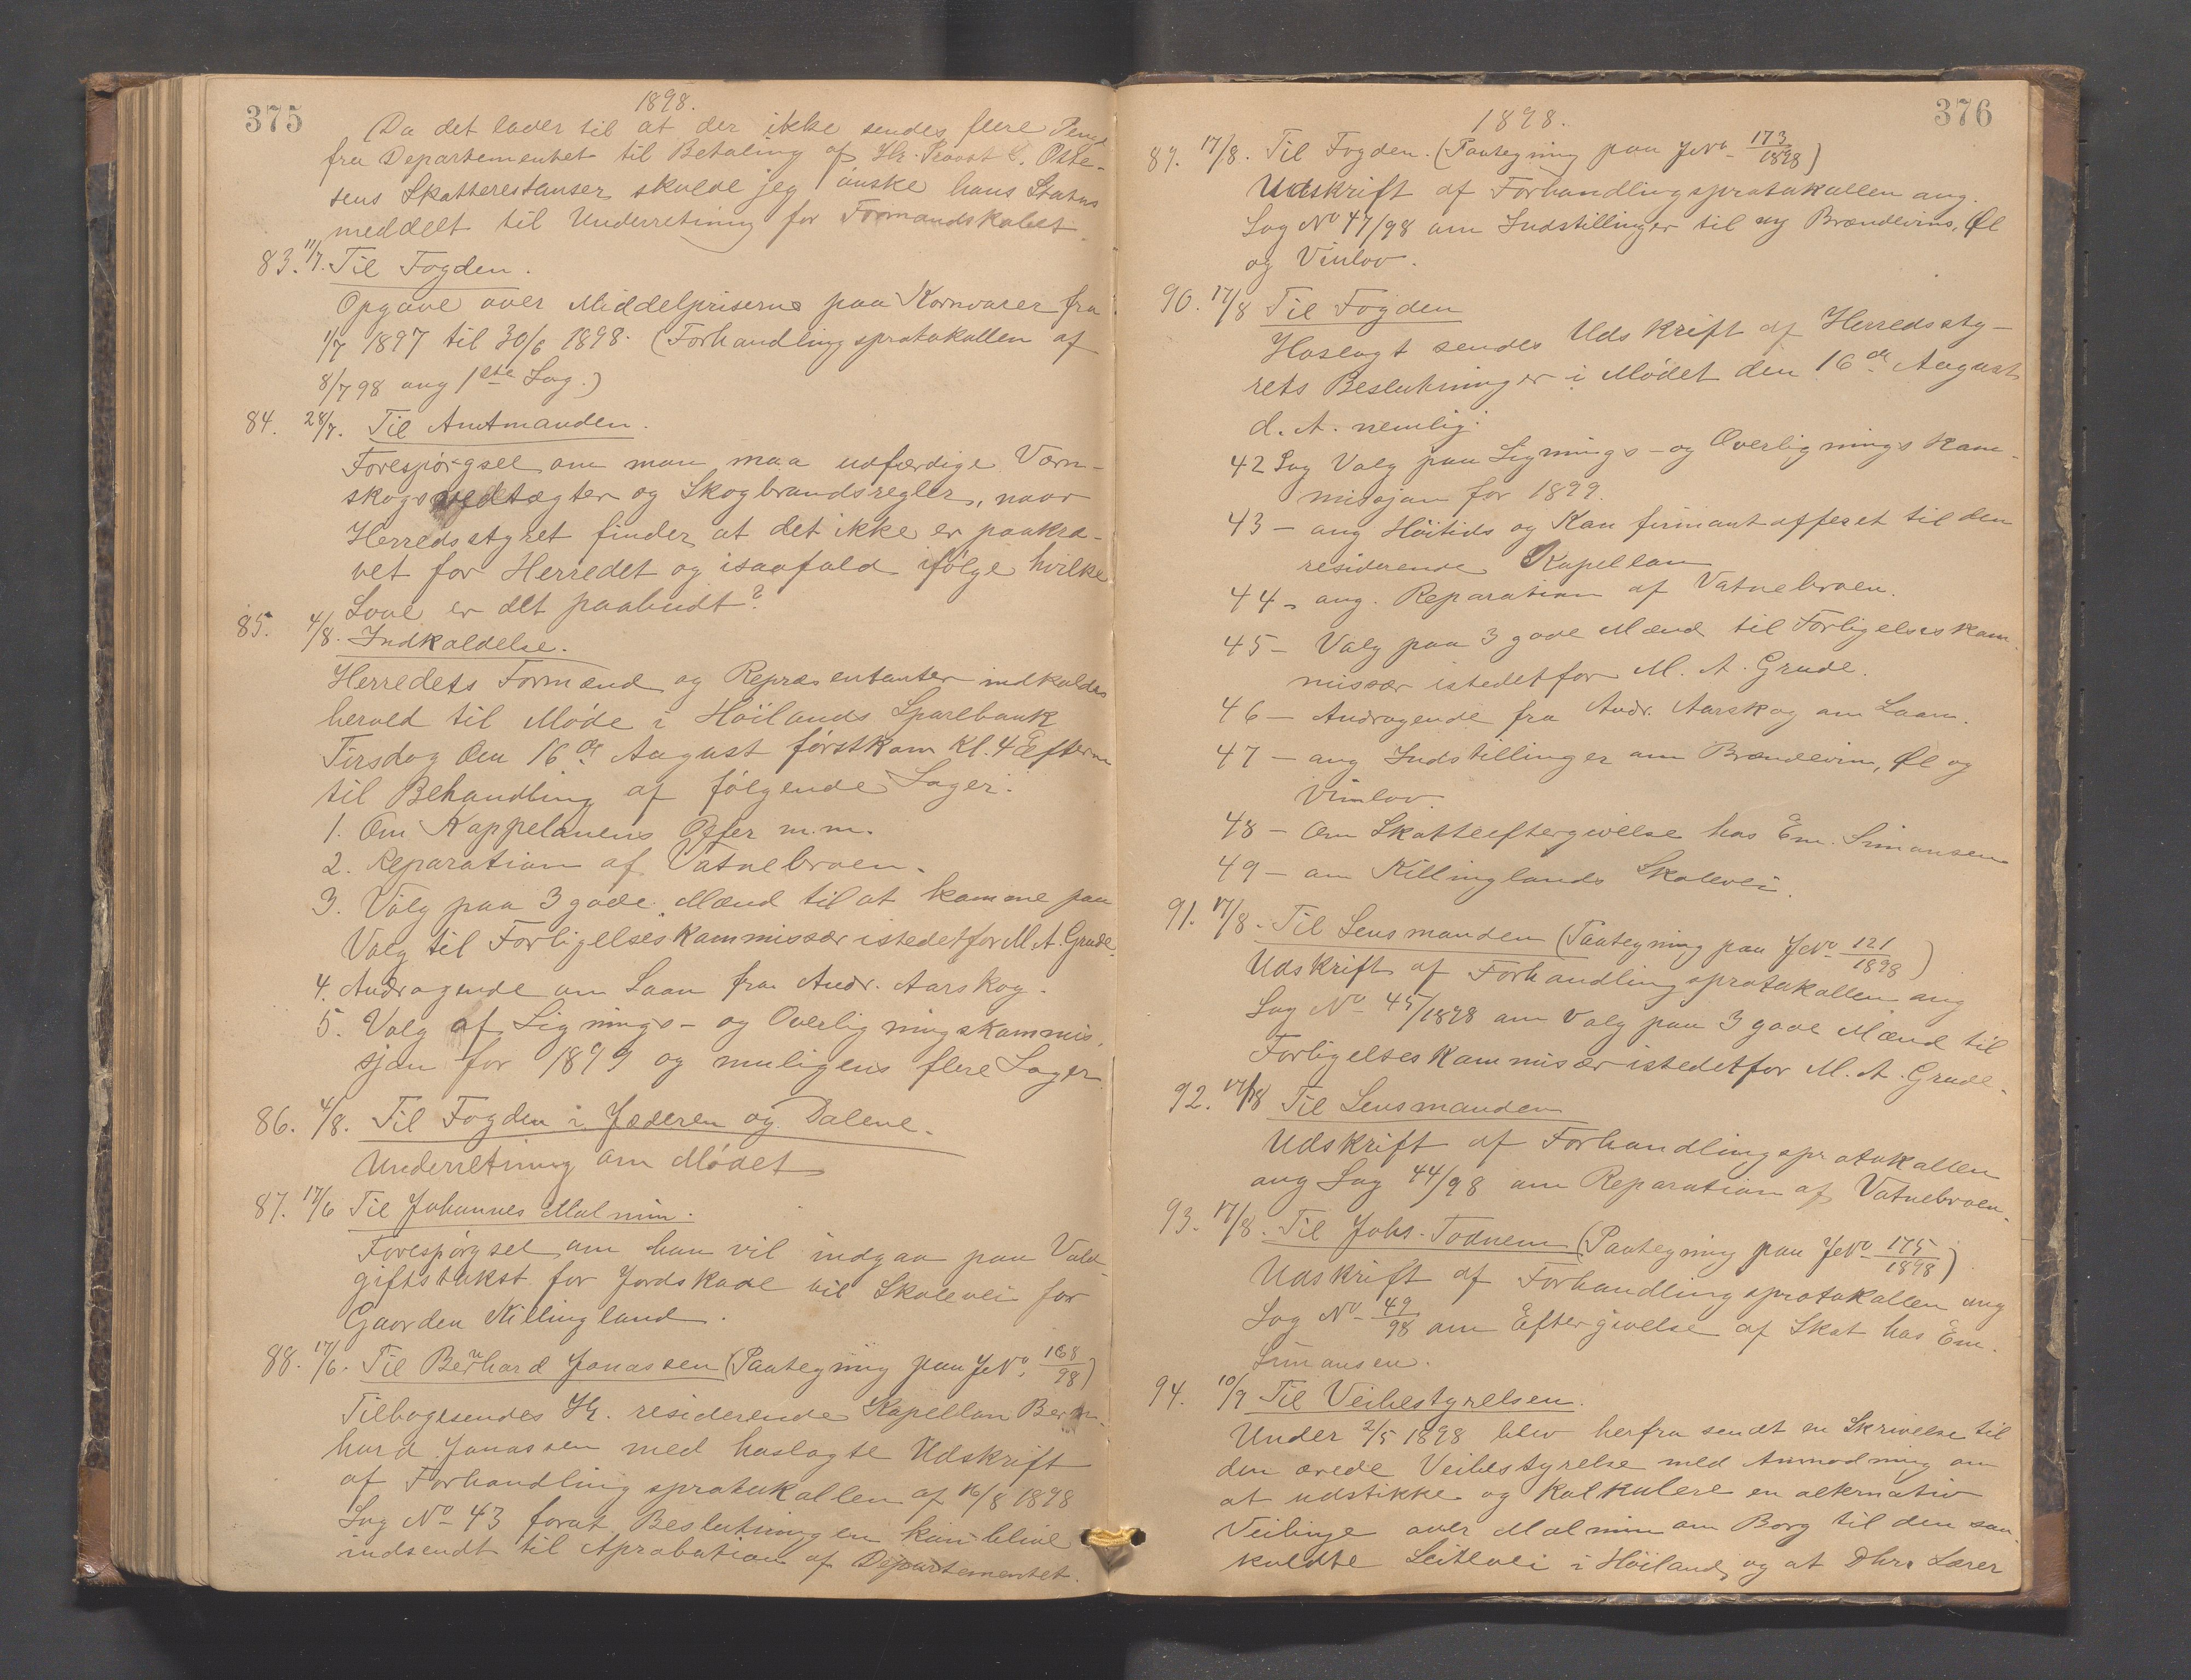 375
1898.
Da det laver til at der ikke sendes flere Penge
fra Departementet til Betaling af Hr. Provst Ofte-
sens Skatterestanser skulde jeg ønske hans Status
meddelt til Underretning for Formandskabet.
83. 11/7. Til Fogden.
Opgave over Middelpriserne paa Kornvarer fra
1/7 1897 til 30/6 1898. (Forhandlingsprotokollen af
8/7 98 ang 1ste Sag.)
84. 28/7. Til Amtmanden.
Forespørgsel om man maa udfærdige Værn-
skogsvedtægter og Skogbrandsregler, naar
Herredsstyret finder at det ikke er paakra-
vet for Herredet og isaafald ifølge hvilke
Love er det paabudt?
85. 4/8. Indkaldelse.
Herredets Formænd og Repræsentanter indkaldes
herved til Møde i Høilands Sparebank
Tirsdag den 16de August førstkom Kl. 4 Efterm
til Behandling af følgende Sager:
1. Om Kappelanens Offer m.m.
2. Reparation af Vatnebroen.
3. Valg paa 3 gode Mænd til at komme paa
Valg til Forligelseskommissær istedetfor M. A. Grude.
4. Andragende om Laan fra Andr. Aarskog.
5. Valg af Lignings- og Overligningskommis-
sjon for 1899 og muligens flere Sager.
86. 4/8. Til Fogden i Jæderen og Dalene.
Underretning om Mødet
87. 17/6 Til Johannes Malmin.
Forespørgsel om han vil indgaa paa Vold-
giftstakst for Jordskade vil Skolevei for
Gaarden Killingland.
88. 17/6. Til Bernhard Jonassen (Paategning paa J.No. 168/98)
Tilbagesendes Hr. residerende Kapellan Bern-
hard Jonassen med hoslagte Udskrift
af Forhandlingsprotokollen af 16/8 1898
Sag No 43 forat Beslutningen kan blive
indsendt til Aprobation af Departementet.
376
1898.
89. 17/8. Til Fogden. (Paategning paa J.No. 173/1898)
Udskrift af Forhandlingsprotokollen ang.
Sag No 47/98 om Indstillinger til ny Brændevins, Øl
og Vinlov.
90. 17/8 Til Fogden
Hoslagt sendes Udskrift af Herredssty-
rets Beslutninger i Mødet den 16de August
d. A. nemlig:
42 Sag Valg paa Lignings- og Overligningskom-
missjon for 1899.
43 – ang Høitids og Konfirmantofferet til den
residerende Kapellan
44 – ang. Reparation af Vatnebroen.
45 – Valg paa 3 gode Mænd til Forligelseskom
missær istedetfor M. A. Grude.
46 – Andragende fra Andr. Aarskog om Laan.
47 – ang Indstillinger om Brændevin, Øl og
Vinlov.
48 – Om Skatteeftergivelse hos Em. Simonsen
49 – om Killinglands Skolevei.
91. 17/8. Til Lensmanden (Paategning paa J.No 121/1898)
Udskrift af Forhandlingsprotokollen ang
Sag No 45/1898 om Valg paa 3 gode Mænd til
Forligelseskommisær istedetfor M. A. Grude.
92. 17/8 Til Lensmanden
Udskrift af Forhandlingsprotokollen
ang Sag 44/98 om Reparation af Vatnebroen.
93. 17/8. Til Johs. Todnem (Paategning paa J.No 175/1898)
Udskrift af Forhandlingsprotokollen ang
Sag No 49/98 om Eftergivelse af Skat hos Em.
Simonsen.
94. 10/9 Til Veibestyrelsen.
Under 2/5 1898 blev herfra sendt en Skrivelse til
den ærede Veibestyrelse med Anmodning om
at udstikke og kalkulere en alternativ
Veilinje over Malmin om Borg til den saa-
kaldte Seitevei i Høiland, og at Dhrr Lærer